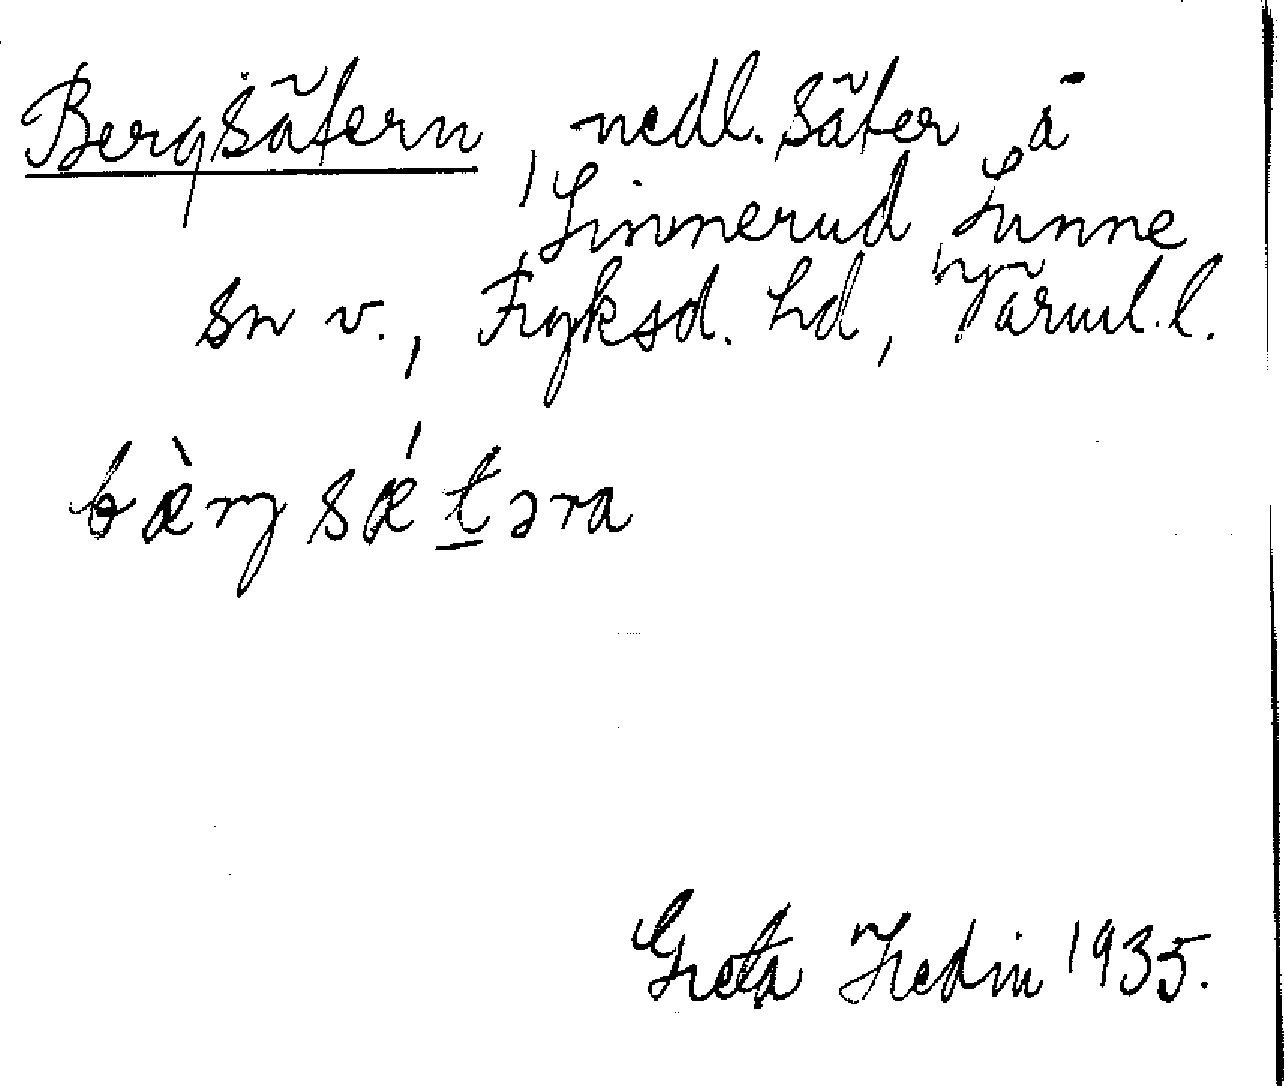 Bergsätern, nedl. säter å
Linnerud, Sunne
sn v., Fryksd. hd, Värml. l.
bæ̀rŋsǽt̲əra
Greta Hedin 1935.